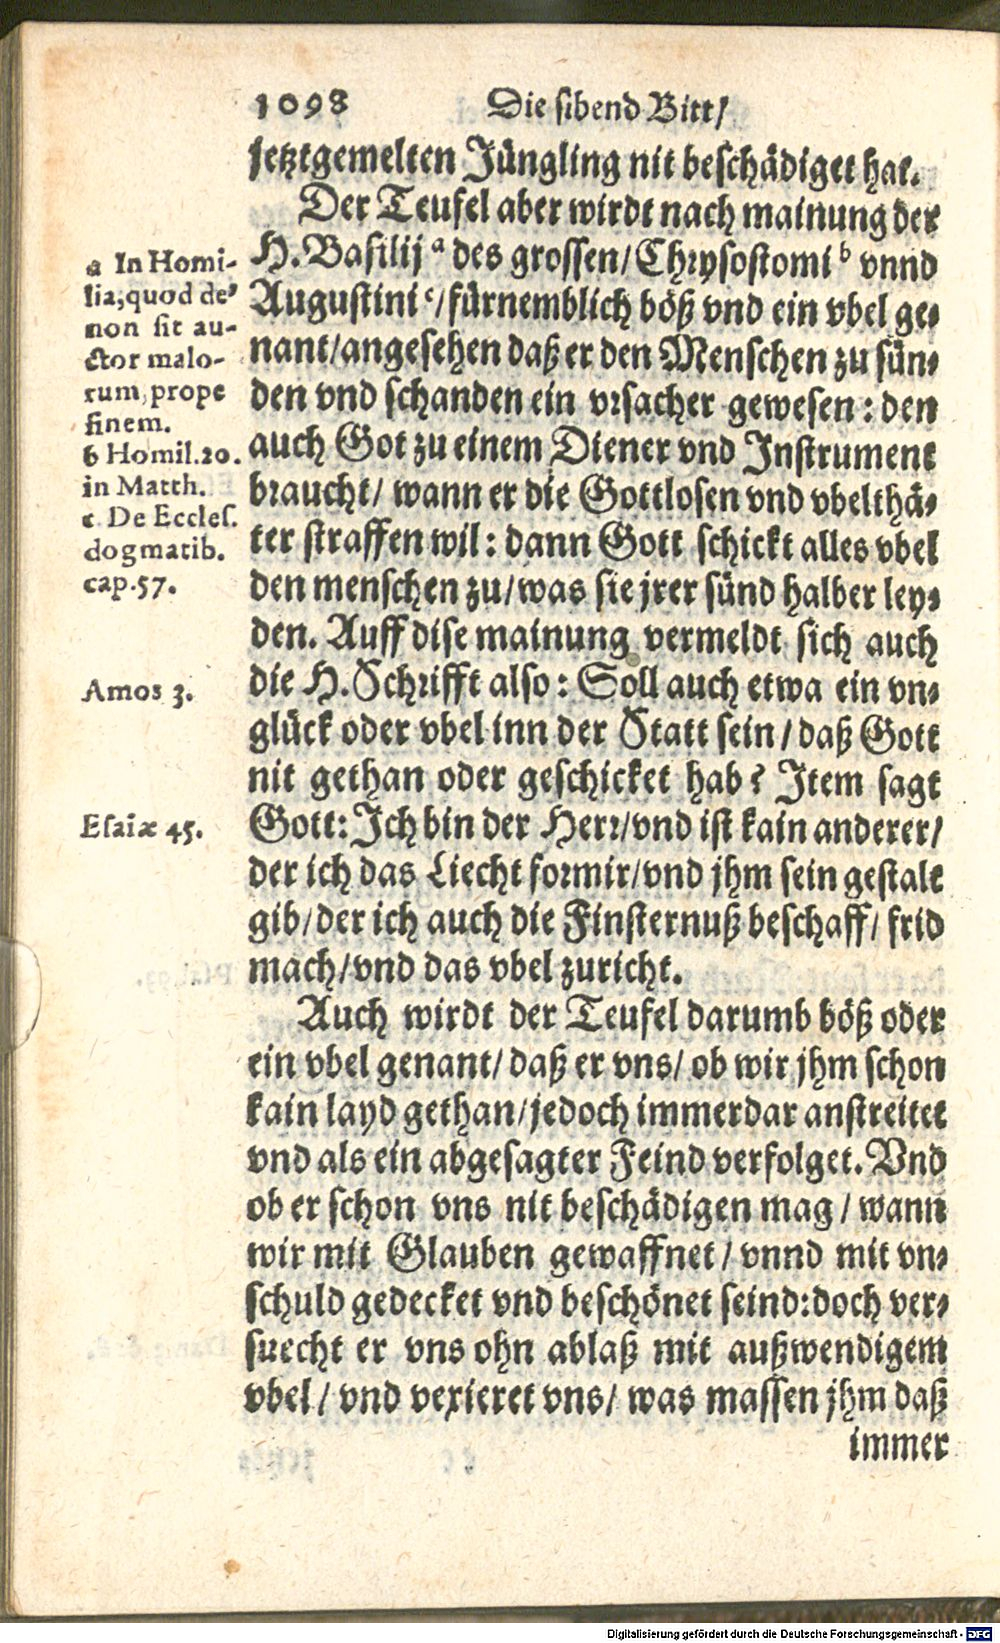 1098 Die sibend Bitt/
jetztgemelten Jüngling nit beschädiget hat.
Der Teufel aber wirdt nach mainung der
H. Basilij a des grossen/ Chrysostomi b vnnd
Augustini c/ fürnemblich böß vnd ein vbel ge⸗
nant/ angesehen daß er den Menschen zu sün⸗
den vnd schanden ein vrsacher gewesen: den
auch Got zu einem Diener vnd Instrument
braucht/ wann er die Gottlosen vnd vbelthä⸗
ter straffen wil: dann Gott schickt alles vbel
den menschen zu/ was sie jrer sünd halber ley⸗
den. Auff dise mainung vermeldt sich auch
die H. Schrifft also: Soll auch etwa ein vn⸗
glück oder vbel inn der Statt sein/ daß Gott
nit gethan oder geschicket hab? Item sagt
Gott: Ich bin der Herr/ vnd ist kain anderer/
der ich das Liecht formir/ vnd jhm sein gestalt
gib/ der ich auch die Finsternuß beschaff/ frid
mach/ vnd das vbel zuricht.
Auch wirdt der Teufel darumb böß oder
ein vbel genant/ daß er vns/ ob wir jhm schon
kain layd gethan/ jedoch immerdar anstreitet
vnd als ein abgesagter Feind verfolget. Vnd
ob er schon vns nit beschädigen mag/ wann
wir mit Glauben gewaffnet/ vnnd mit vn⸗
schuld gedecket vnd beschönet seind: doch ver⸗
suecht er vns ohn ablaß mit außwendigem
vbel/ vnd vexieret vns/ was massen jhm daß
immer
a In Homi-
lia, quod de'
non sit au-
ctor malo-
rum, prope
finem.
b Homil. 20.
in Matth.
c De Eccles.
dogmatib.
cap. 57.
Amos 3.
Esaiæ 45.
Digitalisierung gefördert durch die Deutsche Forschungsgemeinschaft - DFG